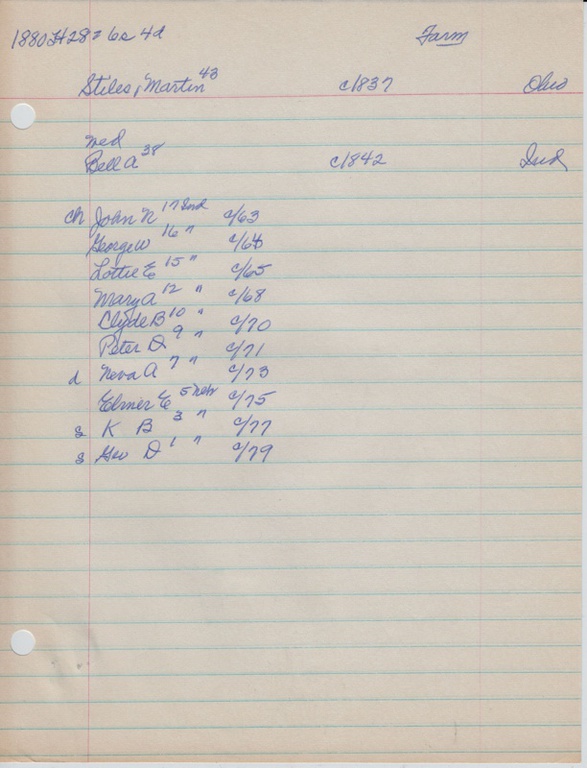 1880 H 28= 6s 4d Farm
Stiles, Martin 43 c/1837 Ohio
med
Bell A 38 c/1842 Ind
ch John N 17 Ind c/63
George W 16 " c/64
Lottie E 15 " c/65
Mary A 12 " c/68
Clyde B 10 " c/70
Peter D 9 " c/71
d Neva A 7 " c/73
Elmer E 5 Nebr c/75
s K B 3 " c/77
s Geo D 1 " c/79